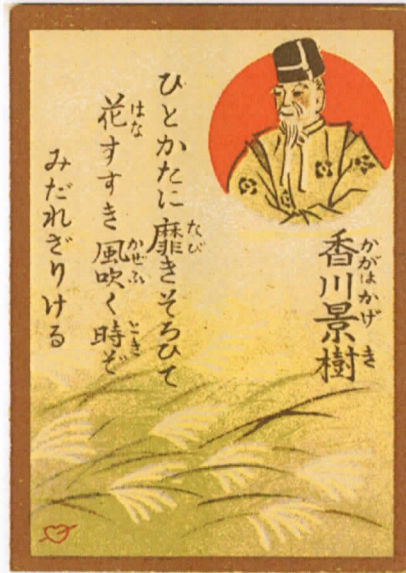 香川景樹
かがはかげき
ひとかたに靡きそろひて
たび
花すすき風吹く時ぞ
はなかぜふとき
みだれざりける